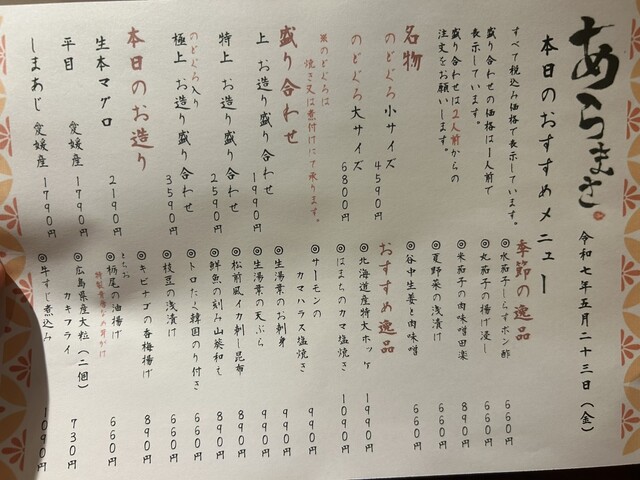 あらまさ
本日のおすすめメニュー
令和七年五月二十三日(金)
すべて税込み価格で表示しています。
盛り合わせの価格は1人前で
表示しています。
盛り合わせは2人前からの
注文をお願いします。
名物
のどぐろ小サイズ 4590円
のどぐろ大サイズ 6800円
焼き又は煮付けにて承ります。
盛り合わせ
上 お造り盛り合わせ 1990円
特上 お造り盛り合わせ 2590円
のどぐろ入り
極上 お造り盛り合わせ 3590円
本日のお造り
生本マグロ 2190円
平目 愛媛産 1790円
しまあじ 愛媛産 1790円
季節の逸品
◎水茄子しらすポン酢 660円
◎丸茄子の揚げ浸し 660円
◎米茄子の肉味噌田楽 890円
◎夏野菜の浅漬け 660円
◎谷中生姜と肉味噌 660円
おすすめ逸品
◎北海道産特大ホッケ 1990円
◎はまちのカマ塩焼き 1090円
◎サーモンの
カマハラス塩焼き 990円
◎生湯葉のお刺身 990円
◎生湯葉の天ぷら 990円
◎松前風イカ刺し昆布 890円
◎鮮魚の刻み山葵和え 890円
◎トロたく韓国のり付き 660円
◎枝豆の浅漬け 660円
◎キビナゴの香梅揚げ 890円
とちお
◎栃尾の油揚げ 660円
◎広島県産大粒(二個)
カキフライ 730円
◎牛すじ煮込み 1090円